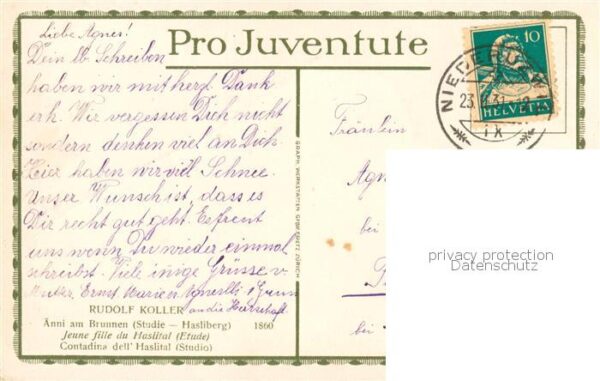 Liebe Agnes!
Pro Juventute
Dein lb. Schreiben
haben wir mit herzl. Dank
erh. Wir vergessen Dich nicht
sondern denken viel an Dich.
Hier haben wir viel Schnee.
Unser Wunsch ist, dass es
Dir recht gut geht. Erfreut
uns wenn Du wieder einmal
schreibst. Viele innige Grüsse v.
Mutter, Ernst Marieli
an die Herrschaft
RUDOLF KOLLER
Änni am Brunnen (Studie — Hasliberg) 1860
Jeune fille du Haslital (Etude)
Contadina dell' Haslital (Studio)
GRAPH. WERKSTÄTTEN GEBR. FRETZ ZÜRICH
10
HELVETIA
23
IX
Fräulein
Agn
bei
bei
privacy protection
Datenschutz